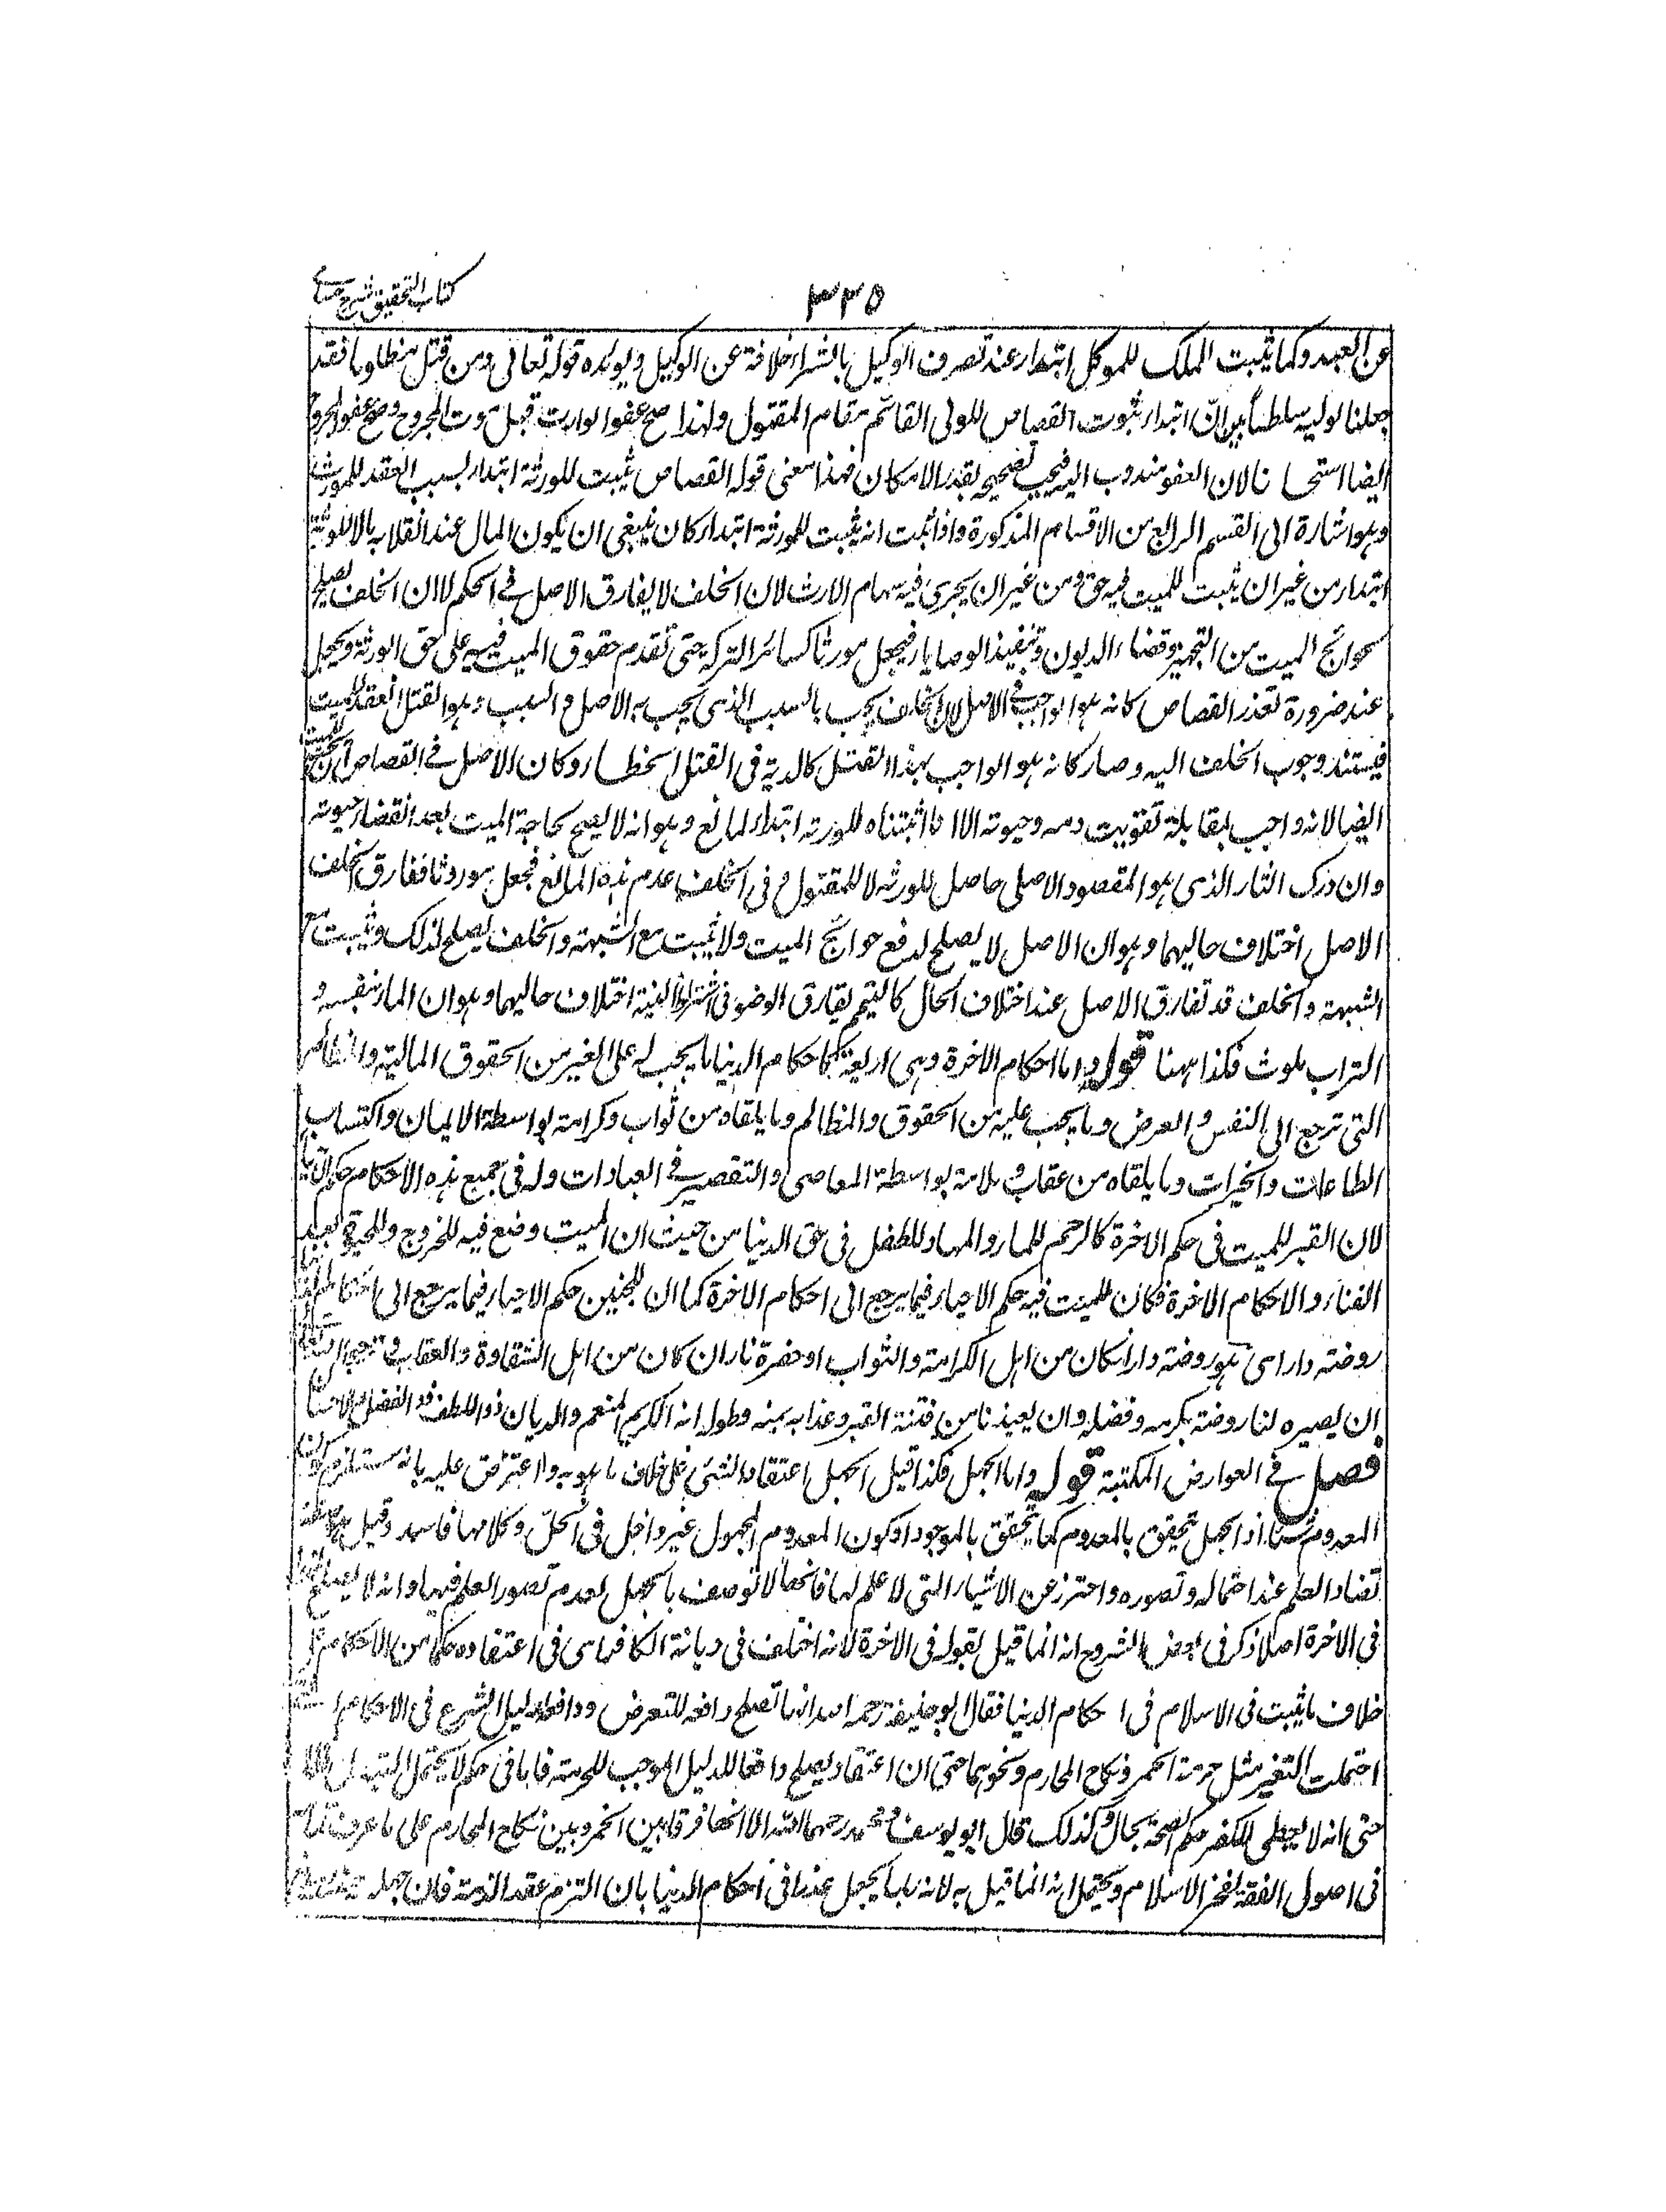 كتاب التحقيق شرح حسامى
٣٣٥
عن العبد وكما يثبت الملك للموكل ابتداء عند تصرف الوكيل بالشراء خلافة عن الوكيل ويؤيده قوله تعالى ومن قتل مظلوما فقد
جعلنا لوليه سلطنا بين ان ابتداء ثبوت القصاص للولى القائم مقام المقتول ولهذا صح عفو الوارث قبل موت المجروح وصح عفو المجروح
ايضا استحسانا لان العفو مندوب اليه فيجب تصحيحه بقدر الامكان فهذا معنى قوله القصاص يثبت للورثة ابتداء بسبب العقد للمورث
وهو اشارة الى القسم الرابع من الاقسام المذكورة واذا ثبت انه يثبت للورثة ابتداء كان ينبغى ان يكون المال عند انقلابه مالا للورثة
ابتداء من غير ان يثبت للميت فيه حق ومن غير ان يجرى فيه سهام الارث لان الخلف لا يفارق الاصل فى الحكم لا ان الخلف يصلح
لحوائج الميت من التجهيز وقضاء الديون وتنفيذ الوصايا فيجعل مورثا كسائر التركة حتى تقدم حقوق الميت فيه على حق الورثة ويجعل
عند ضرورة تعذر القصاص كانه هو الواجب فى الاصل لان الخلف يجب بالسبب الذى يجب به الاصل والسبب وهو القتل انعقد للميت
فيستند وجوب الخلف اليه وصار كانه هو الواجب بهذا القتل كالدية فى القتل الخطاء وكان الاصل فى القصاص ان يجب للميت
ايضا لانه واجب بمقابلة تفويت دمه وحيوته الا انا اثبتناه للورثة ابتداء لمانع وهو انه لا يصلح لحاجة الميت بعد انقضاء حيوته
وان درك الثار الذى هو المقصود الاصلى حاصل للورثة لا للمقتول وفى الخلف عدم هذه المانع فجعل موروثا ففارق الخلف
الاصل اختلاف حاليهما وهو ان الاصل لا يصلح لدفع حوائج الميت ولا يثبت مع الشبهة والخلف يصلح لذلك ويثبت مع
الشبهة والخلف قد تفارق الاصل عند اختلاف الحال كالتيمم يفارق الوضوء فى اشتراط النية اختلاف حاليهما وهو ان الماء بنفسه و
التراب ملوث فكذا ههنا قوله واما احكام الاخرة وهى اربعة كاحكام الدنيا ما يجب له على الغير من الحقوق المالية والمظالم
التى ترجع الى النفس والعرض وما يجب عليه من الحقوق والمظالم وما يلقاه من ثواب وكرامة بواسطة الايمان واكتساب
الطاعات والخيرات وما يلقاه من عقاب وملامة بواسطة المعاصى والتقصير فى العبادات وله فى جميع هذه الاحكام حكم الاحياء
لان القبر للميت فى حكم الاخرة كالرحم للماء والمهاد للطفل فى حق الدنيا من حيث ان الميت وضع فيه للخروج وللحيوة بعد
الفناء والاحكام الاخرة فكان للميت فيه حكم الاحياء فيما يرجع الى احكام الاخرة كما ان للجنين حكم الاحياء فيما يرجع الى احكام
روضة دار اى هو روضة دار ان كان من اهل الكرامة والثواب او حفرة نار ان كان من اهل الشقاوة والعقاب
ان يصيره لنا روضة بكرمه وفضله وان يعيذنا من فتنة القبر وعذابه بمنه وطوله انه الكريم المنعم والديان ذو اللطف ذو الفضل والاحسان
فصل فى العوارض المكتبة قوله واما الجهل فكذا قيل الجهل اعتقاد الشئ على خلاف ما هو به واعترض عليه بانه يستلزم كون
المعدوم شيئا اذ الجهل يتحقق بالمعدوم كما يتحقق بالموجود او كون المعدوم المجهول غير داخل فى الحد وكلاهما فاسد وقيل هو صفة
تضاد العلم عند احتماله وتصوره واحترز عن الاشياء التى لا علم لها فانها لا توصف بالجهل لعدم تصور العلم فيها وانه لا يصلح عذرا
فى الاخرة اصلا ذكر فى بعض الشروح انه انما قيل بقوله فى الاخرة لانه اختلف فى ديانة الكافر اى فى اعتقاده حكما من الاحكام على
خلاف ما يثبت فى الاسلام فى احكام الدنيا فقال ابو حنيفة رحمه الله انها تصلح دافعه للتعرض ودافعة لدليل الشرع فى الاحكام التى
احتملت التغير مثل حرمة الخمر ونكاح المحارم ونحوهما حتى ان اعتقاد يصلح دافعا للدليل الموجب للحرمة فاما فى حكم لا يحتمل التبدل فلا
حتى انه لا يعطى للكفر حكم الصحة بحال وكذلك قال ابو يوسف ومحمد رحمهما الله الا انهما فرقا بين الخمر وبين نكاح المحارم على ما عرف تمامه
فى اصول الفقه لفخر الاسلام ويحتمل انه انما قيل به لانه ربما يجعل عذرا فى احكام الدنيا بان التزم عقد الذمة فان جهله